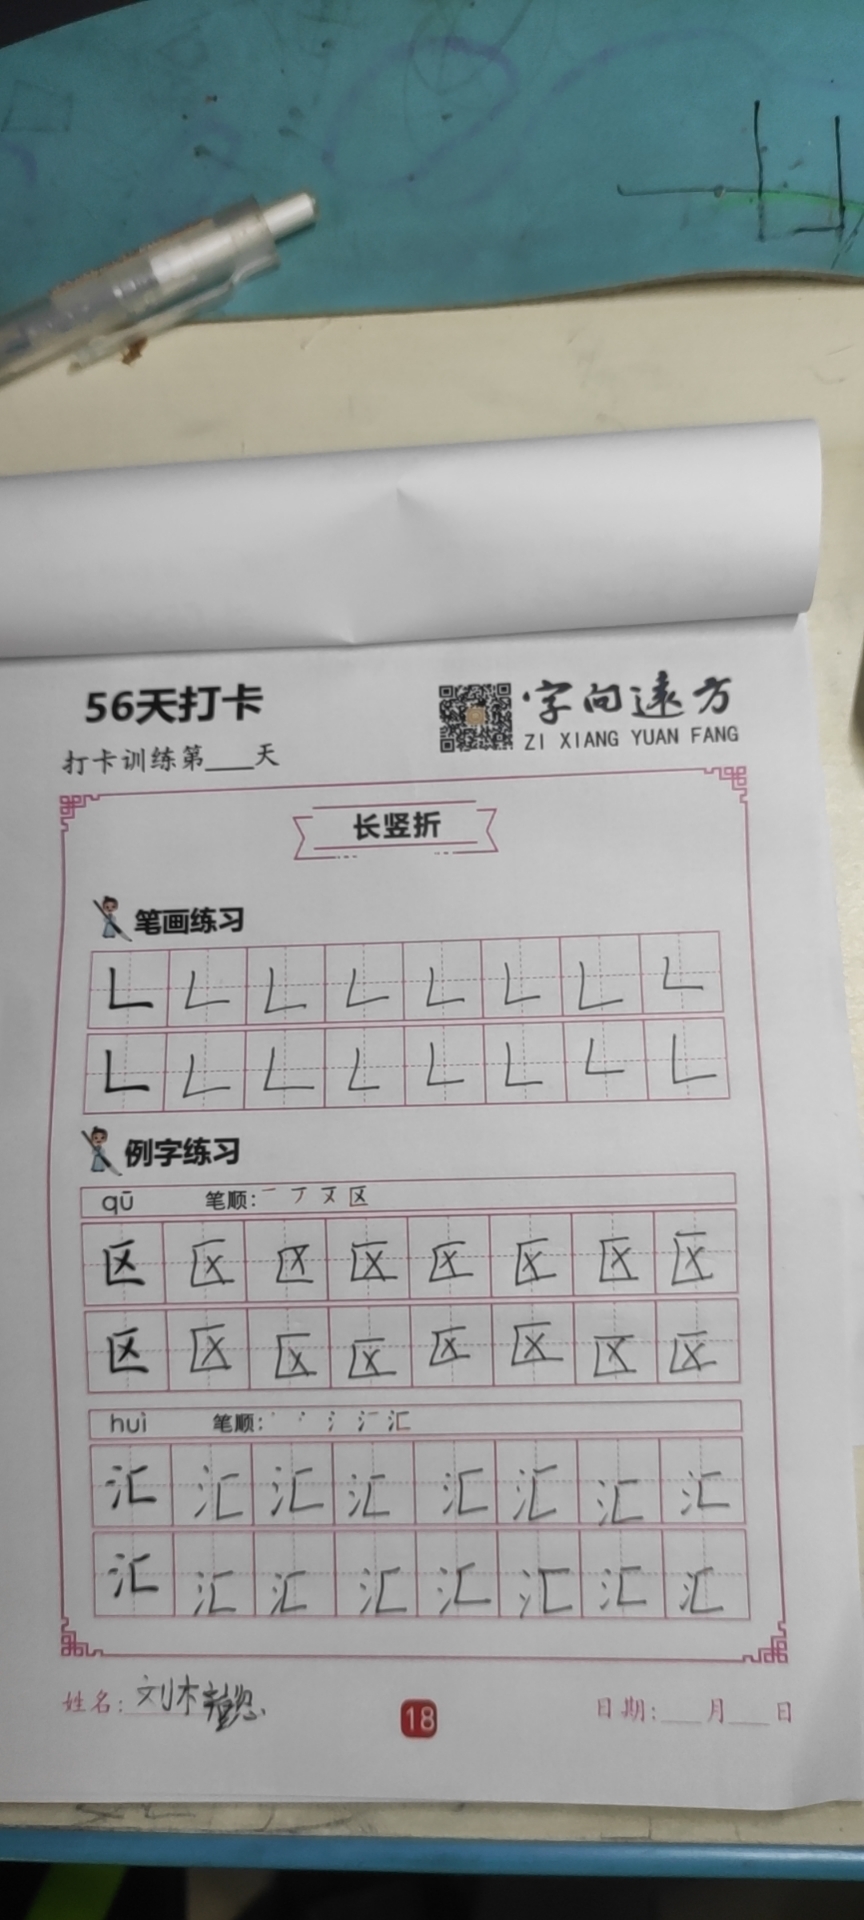 56天打卡
字向远方
ZI XIANG YUAN FANG
打卡训练第___天
长竖折
笔画练习
𠃊 𠃊 𠃊 𠃊 𠃊 𠃊 𠃊 𠃊
𠃊 𠃊 𠃊 𠃊 𠃊 𠃊 𠃊 𠃊
例字练习
qū 笔顺: 一 丆 㐅 区
区 区 区 区 区 区 区 区
区 区 区 区 区 区 区 区
huì 笔顺: 丶 冫 氵 汇
汇 汇 汇 汇 汇 汇 汇 汇
汇 汇 汇 汇 汇 汇 汇 汇
姓名: 刘木
18
日期:___月___日